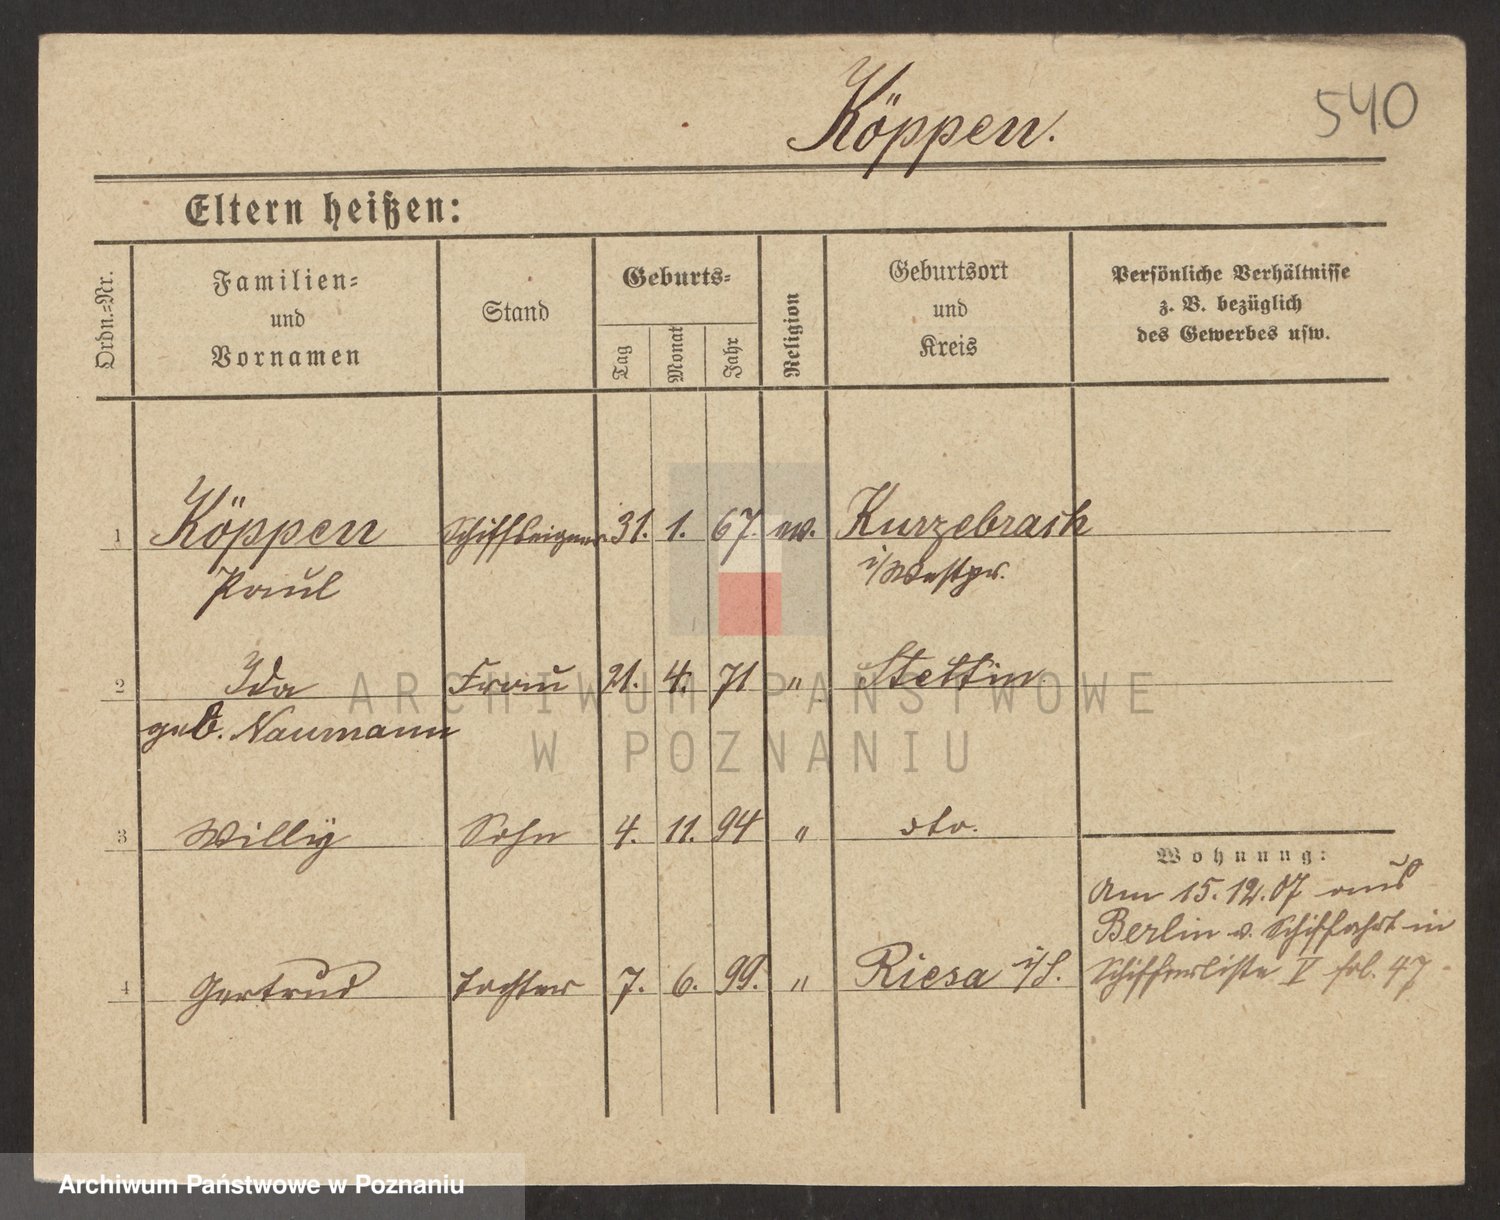 Köppen.
540
Eltern heißen:
Ordn.-Nr.
Familien-
und
Vornamen
Stand
Geburts-
Tag
Monat
Jahr
Religion
Geburtsort
und
Kreis
Persönliche Verhältnisse
z. B. bezüglich
des Gewerbes usw.
1 Köppen Schiffseigner 31. 1. 67. ev. Kurzebrack
Paul i/Westpr.
2 Ida Frau 21. 4. 71 " Stettin
geb. Naumann
3 Willy Sohn 4. 11. 94 " dto.
Wohnung:
Am 15.12.07 aus
Berlin v. Schiffahrt in
Schifferliste V fol. 47
4 Gertrud Tochter 7. 6. 99. " Riesa i/S.
ARCHIWUM PAŃSTWOWE
W POZNANIU
Archiwum Państwowe w Poznaniu